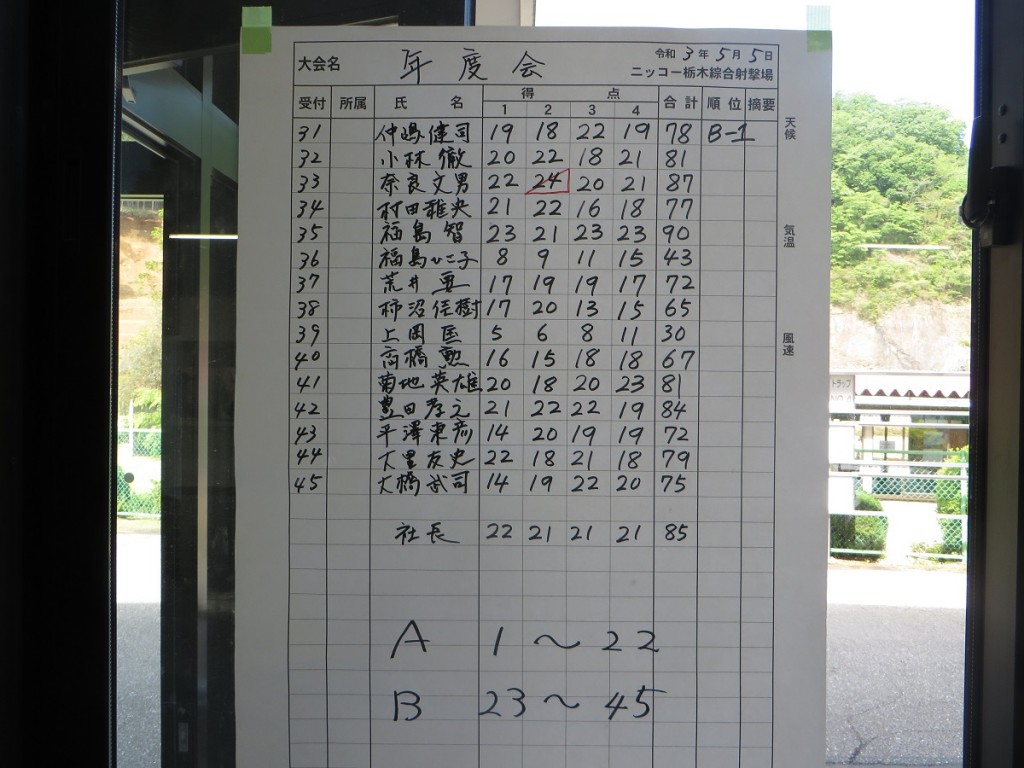 大会名 年度会 令和3年5月5日
ニッコー栃木綜合射撃場
受付 所属 氏名 得点 合計 順位 摘要
1 2 3 4
31 仲嶋健司 19 18 22 19 78 B-1
32 小林徹 20 22 18 21 81
33 奈良文男 22 24 20 21 87
34 村田雅央 21 22 16 18 77
35 福島智 23 21 23 23 90
36 福島ひこ子 8 9 11 15 43
37 荒井要 17 19 19 17 72
38 柿沼佳樹 17 20 13 15 65
39 上岡匡 5 6 8 11 30
40 高橋勲 16 15 18 18 67
41 菊地英雄 20 18 20 23 81
42 豊田孝之 21 22 22 19 84
43 平澤東彦 14 20 19 19 72
44 大里友史 22 18 21 18 79
45 大橋武司 14 19 22 20 75
社長 22 21 21 21 85
A 1～22
B 23～45
天候
気温
風速
トラップ